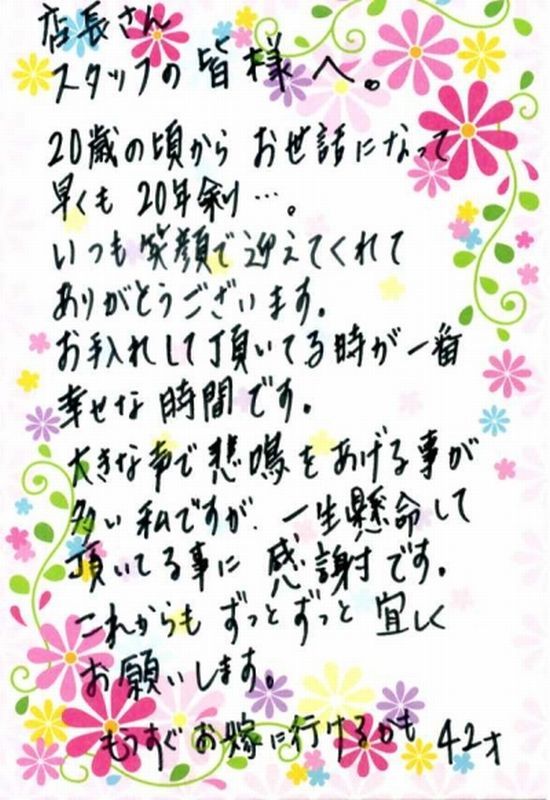 店長さん
スタッフの皆様へ。
20歳の頃からお世話になって
早くも20年剰…。
いつも笑顔で迎えてくれて
ありがとうございます。
お手入れして頂いてる時が一番
幸せな時間です。
大きな声で悲鳴をあげる事が
多い私ですが、一生懸命して
頂いてる事に感謝です。
これからもずっとずっと宜しく
お願いします。
もうすぐお嫁に行けるかも 42才